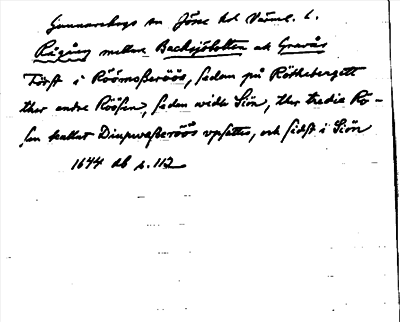 Gunnarskogs sn Jösse hd Värml. l.
Rågång mellan Backsjötotten och Gravås
Först i Röömoßeröös, sedan på Röttebergett
ther andre Röösen, sedan widh Siön, ther tredie Rö-
sen kallat Diupwaßeröös vpsattes, och sidst i Siön
1644 db p. 112